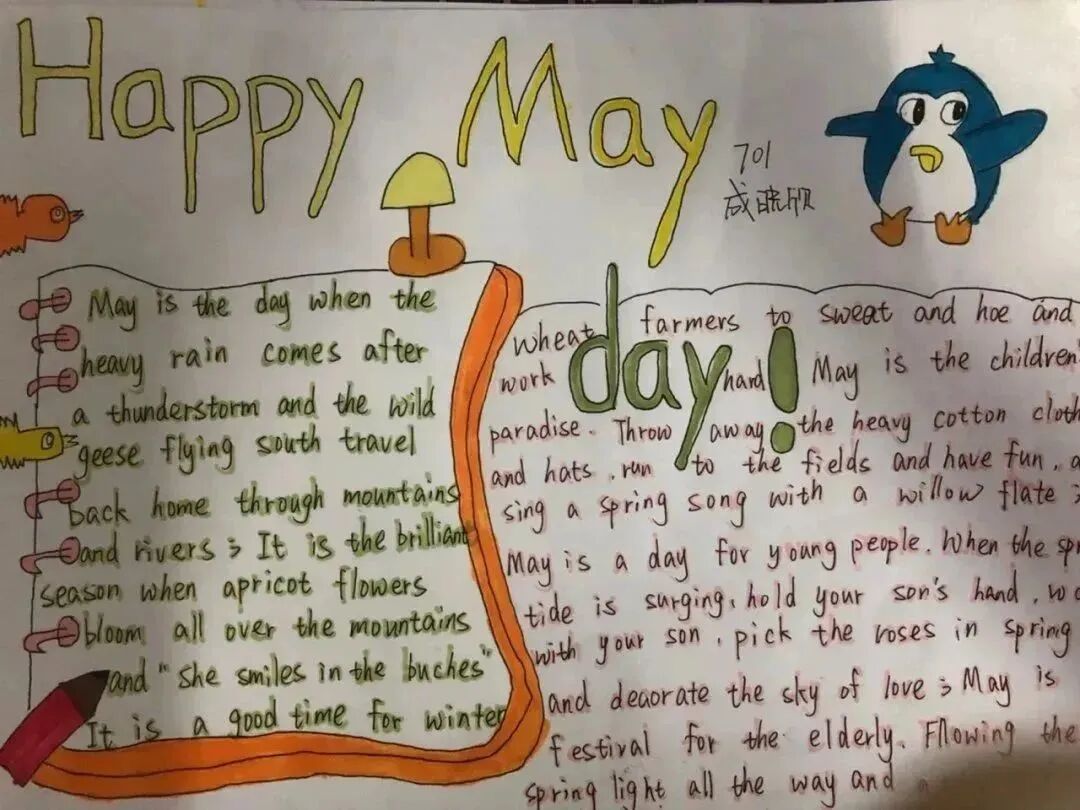 Happy May
day!
701
成晓欣
May is the day when the
heavy rain comes after
a thunderstorm and the wild
geese flying south travel
back home through mountains
and rivers ; It is the brilliant
season when apricot flowers
bloom all over the mountains
and "she smiles in the buches"
It is a good time for winter
wheat farmers to sweat and hoe and
work hard May is the children
paradise. Throw away the heavy cotton cloth
and hats , run to the fields and have fun ,
sing a spring song with a willow flate ;
May is a day for young people. When the spr
tide is surging, hold your son's hand ,
with your son , pick the roses in spring
and deaorate the sky of love ; May is
festival for the elderly. Fllowing the
spring light all the way and